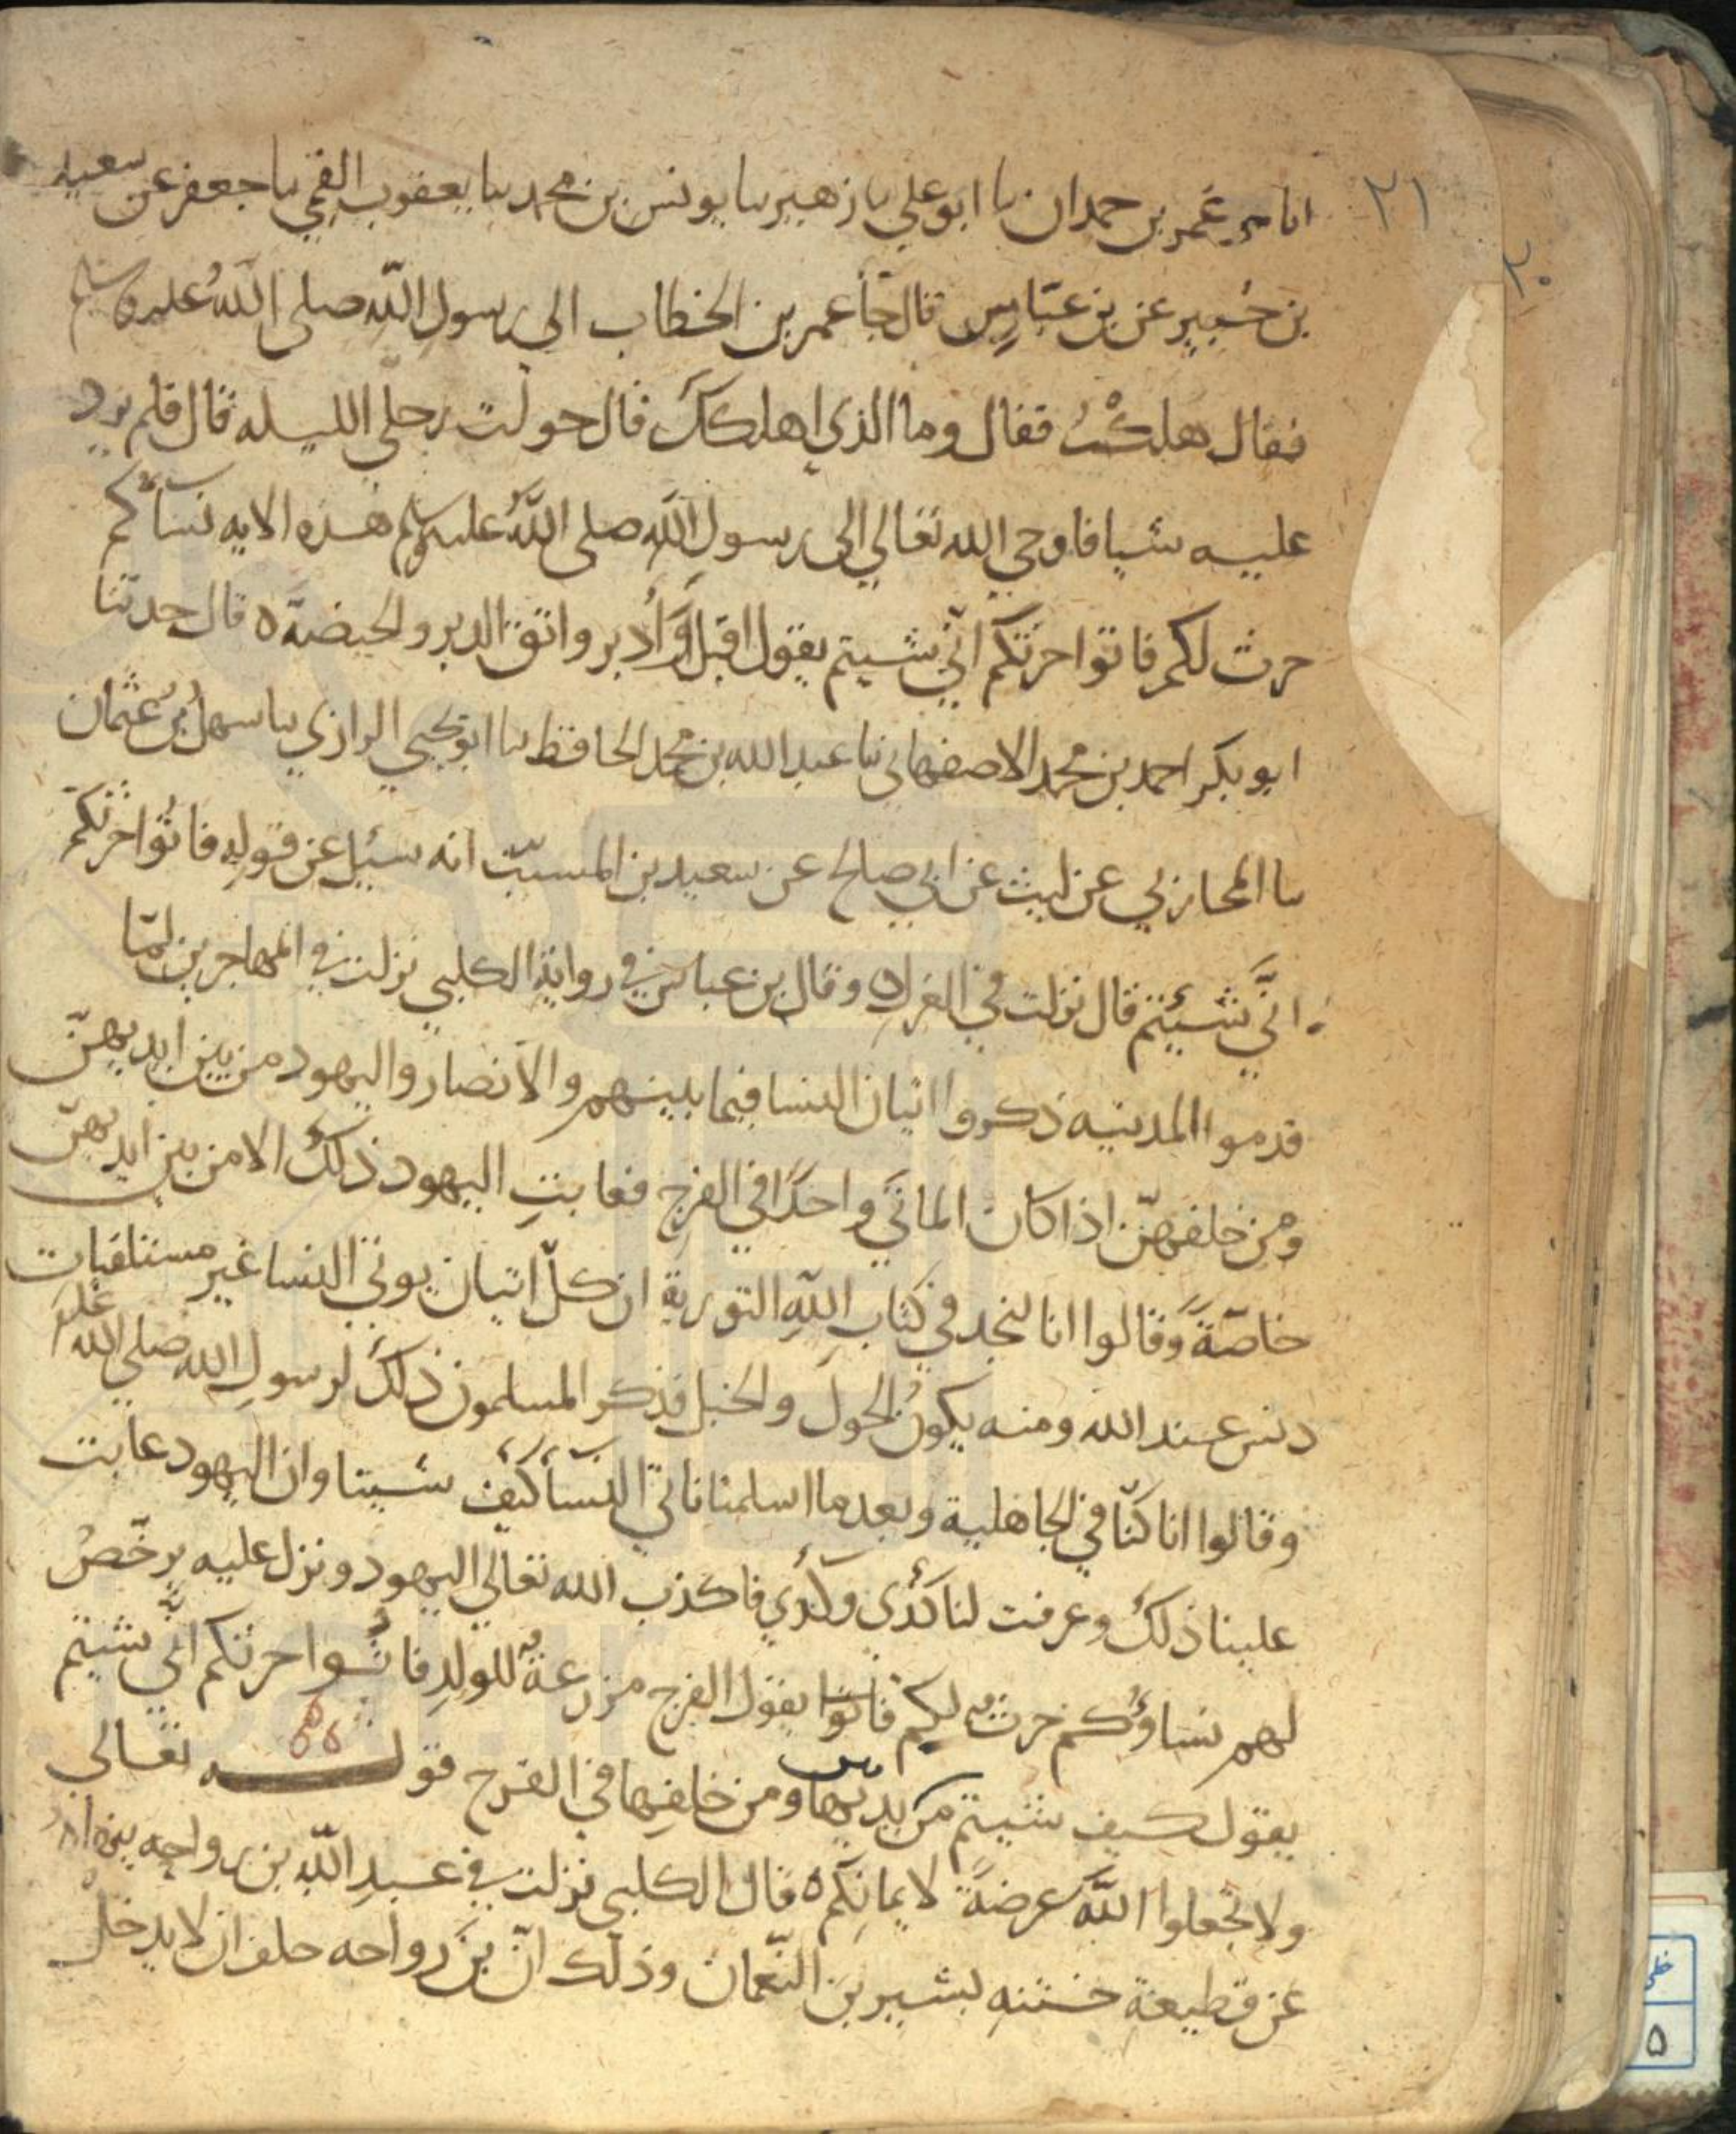 ٢١
٢٠
انا عمر بن حمدان نا ابو علي نا زهير نا يونس بن محمد نا يعقوب القمي نا جعفر عن سعيد
بن جُبير عن بن عبّاس قال جأ عمر بن الخطاب الى رسول اللّه صلى اللّهُ عليه وسلم
فقال هلكتُ فقال وما الذي اهلكك قال حولت رحلي الليله قال فلم يرد
عليه شيا فاوحي الله تعالي الى رسول اللّه صلى اللّهُ عليه وسلم هذه الايه نسآئكم
حرث لكم فاتوا حرثكم انّي شيتم يقول اقبل وَادبر واتق الدبر والحيضة ه قال حدثنا
ابو بكر احمد بن محمد الاصفهاني نا عبد الله بن محمد الحافظ نا ابو يحيي الرازي نا سهل بن عثمان
نا المحاربي عن ليث عن ابي صالح عن سعيد بن المسيّب انه سئل عن قولهِ فاتُوا حرثكم
انَّي شئيتم قال نزلت في العزل ه وقال بن عباس في رواية الكلبي نزلت في المهاجرين لمّا
قدموا المدينه ذكروا اتيان النسا فيما بينهم والانصار واليهود من بين ايديهنّ
ومن خلفهنّ اذا كان الماتَي واحدًا في الفرج فعابتِ اليهود ذلك الا من بين ايديهنّ
خاصّةً وقالوا انا لنجد في كتاب اللّهِ التورية ان كلّ اتيان يوتي النسا غير مستلقيات
دنس عند الله ومنه يكونُ الحول والخبل فذكر المسلمون ذلك لرسولِ الله صلى الله عليه
وقالوا انا كنّا في الجاهلية وبعد ما اسلمنا ناتي النسآ كيف شينا وان اليهود عابت
علينا ذلك وعرفت لنا كذي وكذي فاكذب الله تعالي اليهود ونزل عليه يرخّصُ
لهم نساوُكم حرثٌ لكم فاتوا يقول الفرج مزرعةٌ للولدِ فاتُوا حرثكم انَّي شيتم
يقول كيف شيتم من بين يديها ومن خلفِها في الفرج قوله تعالى
ولا تجعلوا اللّهَ عرضةً لايمانِكم ه قال الكلبي نزلت في عبدِ اللّه بن رواحه ينهاه
عن قطيعة ختنه بشير بن النّعمان وذلك انّ بن رواحه حلف ان لا يدخل
خطى
٥